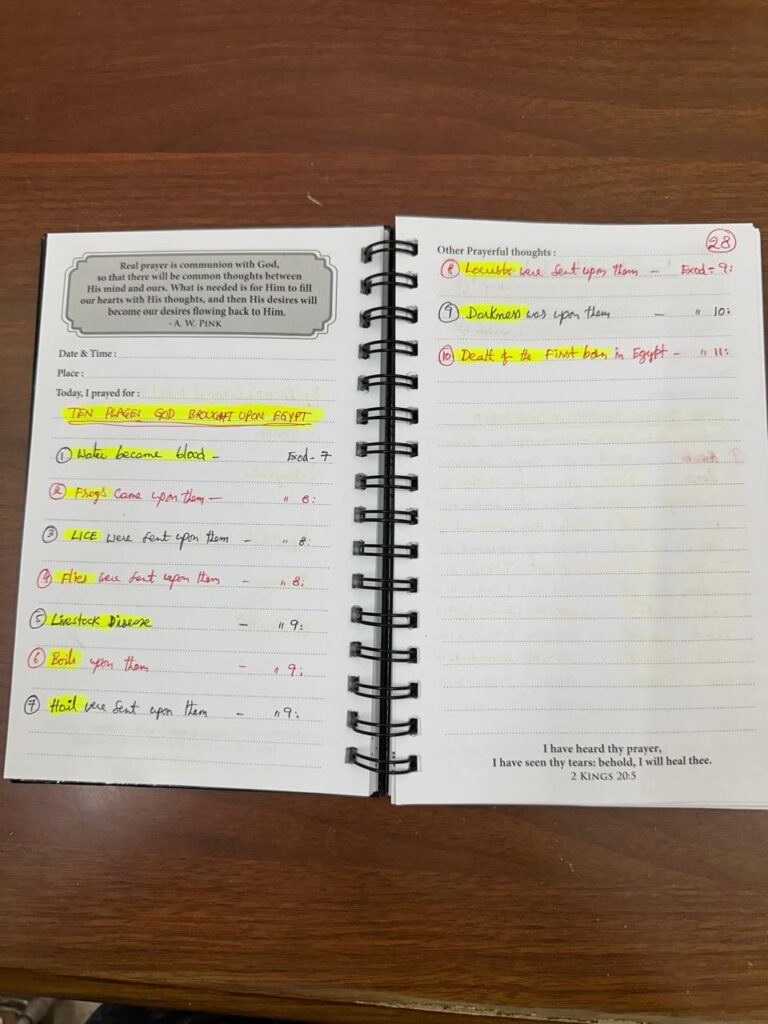 Real prayer is communion with God,
so that there will be common thoughts between
His mind and ours. What is needed is for Him to fill
our hearts with His thoughts, and then His desires will
become our desires flowing back to Him.
- A. W. PINK
Date & Time :
Place :
Today, I prayed for :
TEN PLAGES GOD BROUGHT UPON EGYPT
① Water became blood - Exod - 7
② Frogs Came upon them — " 8:
③ LICE were sent upon them - " 8:
④ Flies were sent upon them - " 8:
⑤ Livestock Disease - " 9:
⑥ Boils upon them - " 9:
⑦ Hail were sent upon them - " 9:
28
Other Prayerful thoughts :
⑧ Locusts were sent upon them - Exod = 9:
⑨ Darkness was upon them - " 10:
⑩ Death of the First born in Egypt - " 11:
I have heard thy prayer,
I have seen thy tears: behold, I will heal thee.
2 KINGS 20:5